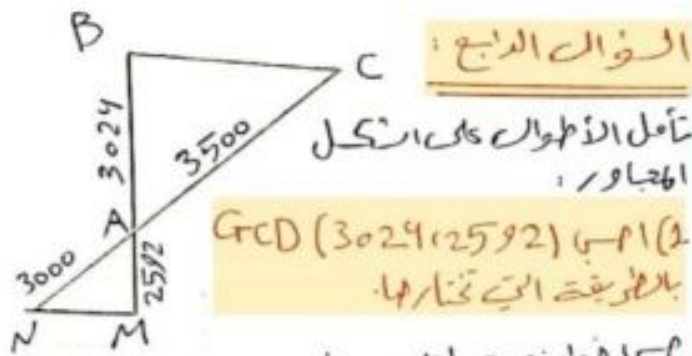 B
C
3024
3500
A
3000
2592
N
M
السؤال الرابع :
تأمل الأطوال على الشكل
المجاور :
1) احسبي GCD (3024، 2592)
بالطريقة التي تختارها.